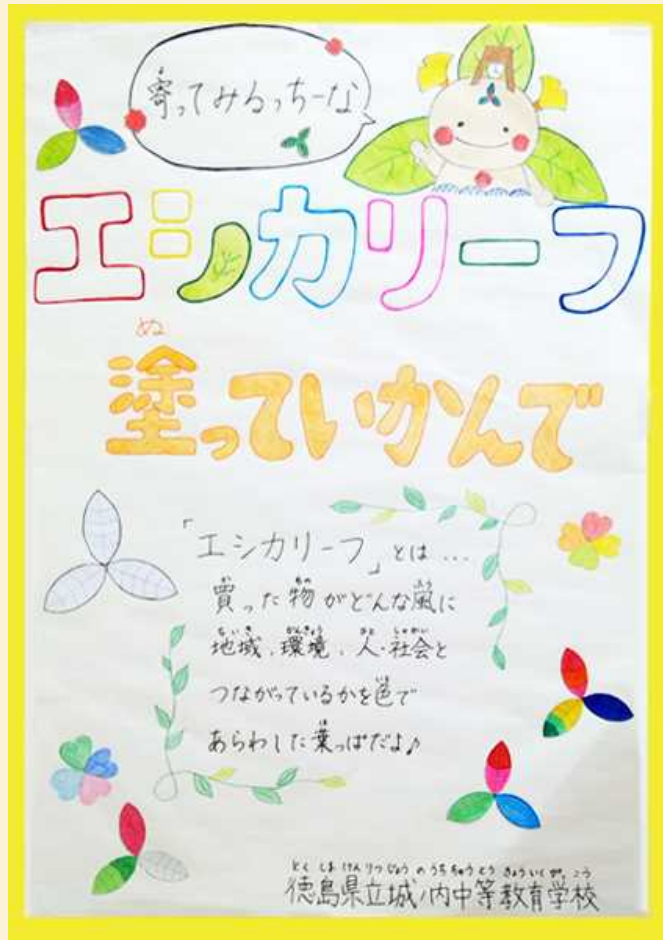 よ
寄ってみるっちーな
エシカリーフ
ぬ
塗っていかんで
「エシカリーフ」とは…
か もの ふう
買った物がどんな風に
ちいき かんきょう ひと しゃかい
地域、環境、人・社会と
いろ
つながっているかを色で
は
あらわした葉っぱだよ♪
とくしまけんりつじょうのうちちゅうとうきょういくがっこう
徳島県立城ノ内中等教育学校